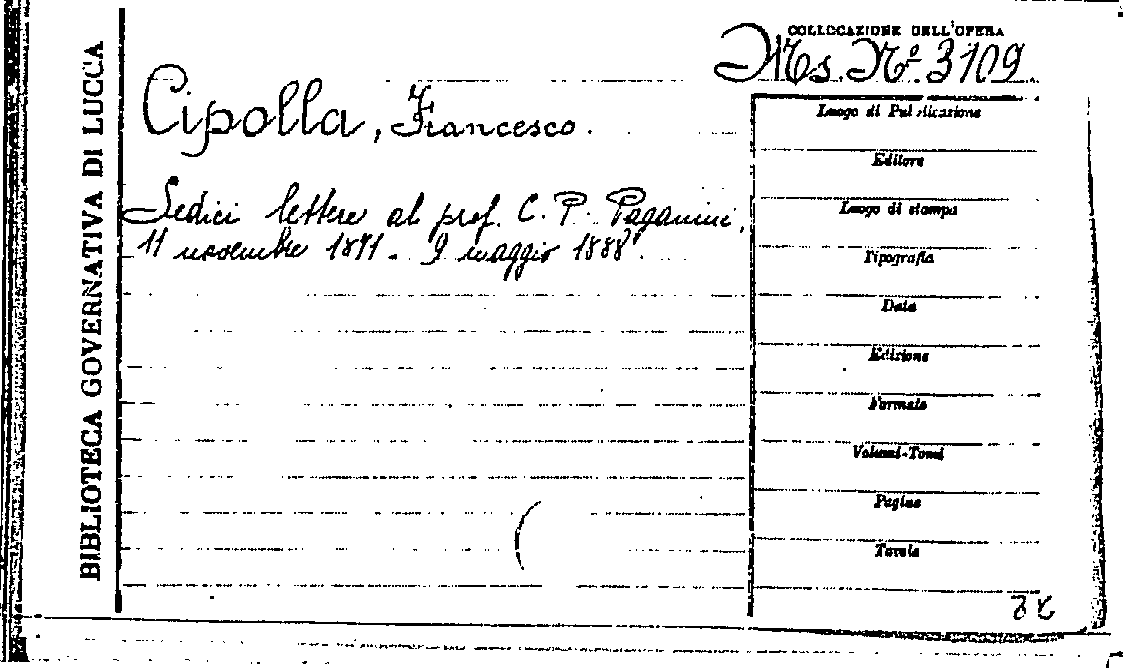 BIBLIOTECA GOVERNATIVA DI LUCCA
COLLOCAZIONE DELL'OPERA
Ms. Nº. 3109
Cipolla, Francesco.
Sedici lettere al prof. C. P. Paganini,
11 novembre 1871 - 9 maggio 1888.
Luogo di Pubblicazione
Editore
Luogo di stampa
Tipografia
Data
Edizione
Formato
Volumi-Tomi
Pagine
Tavole